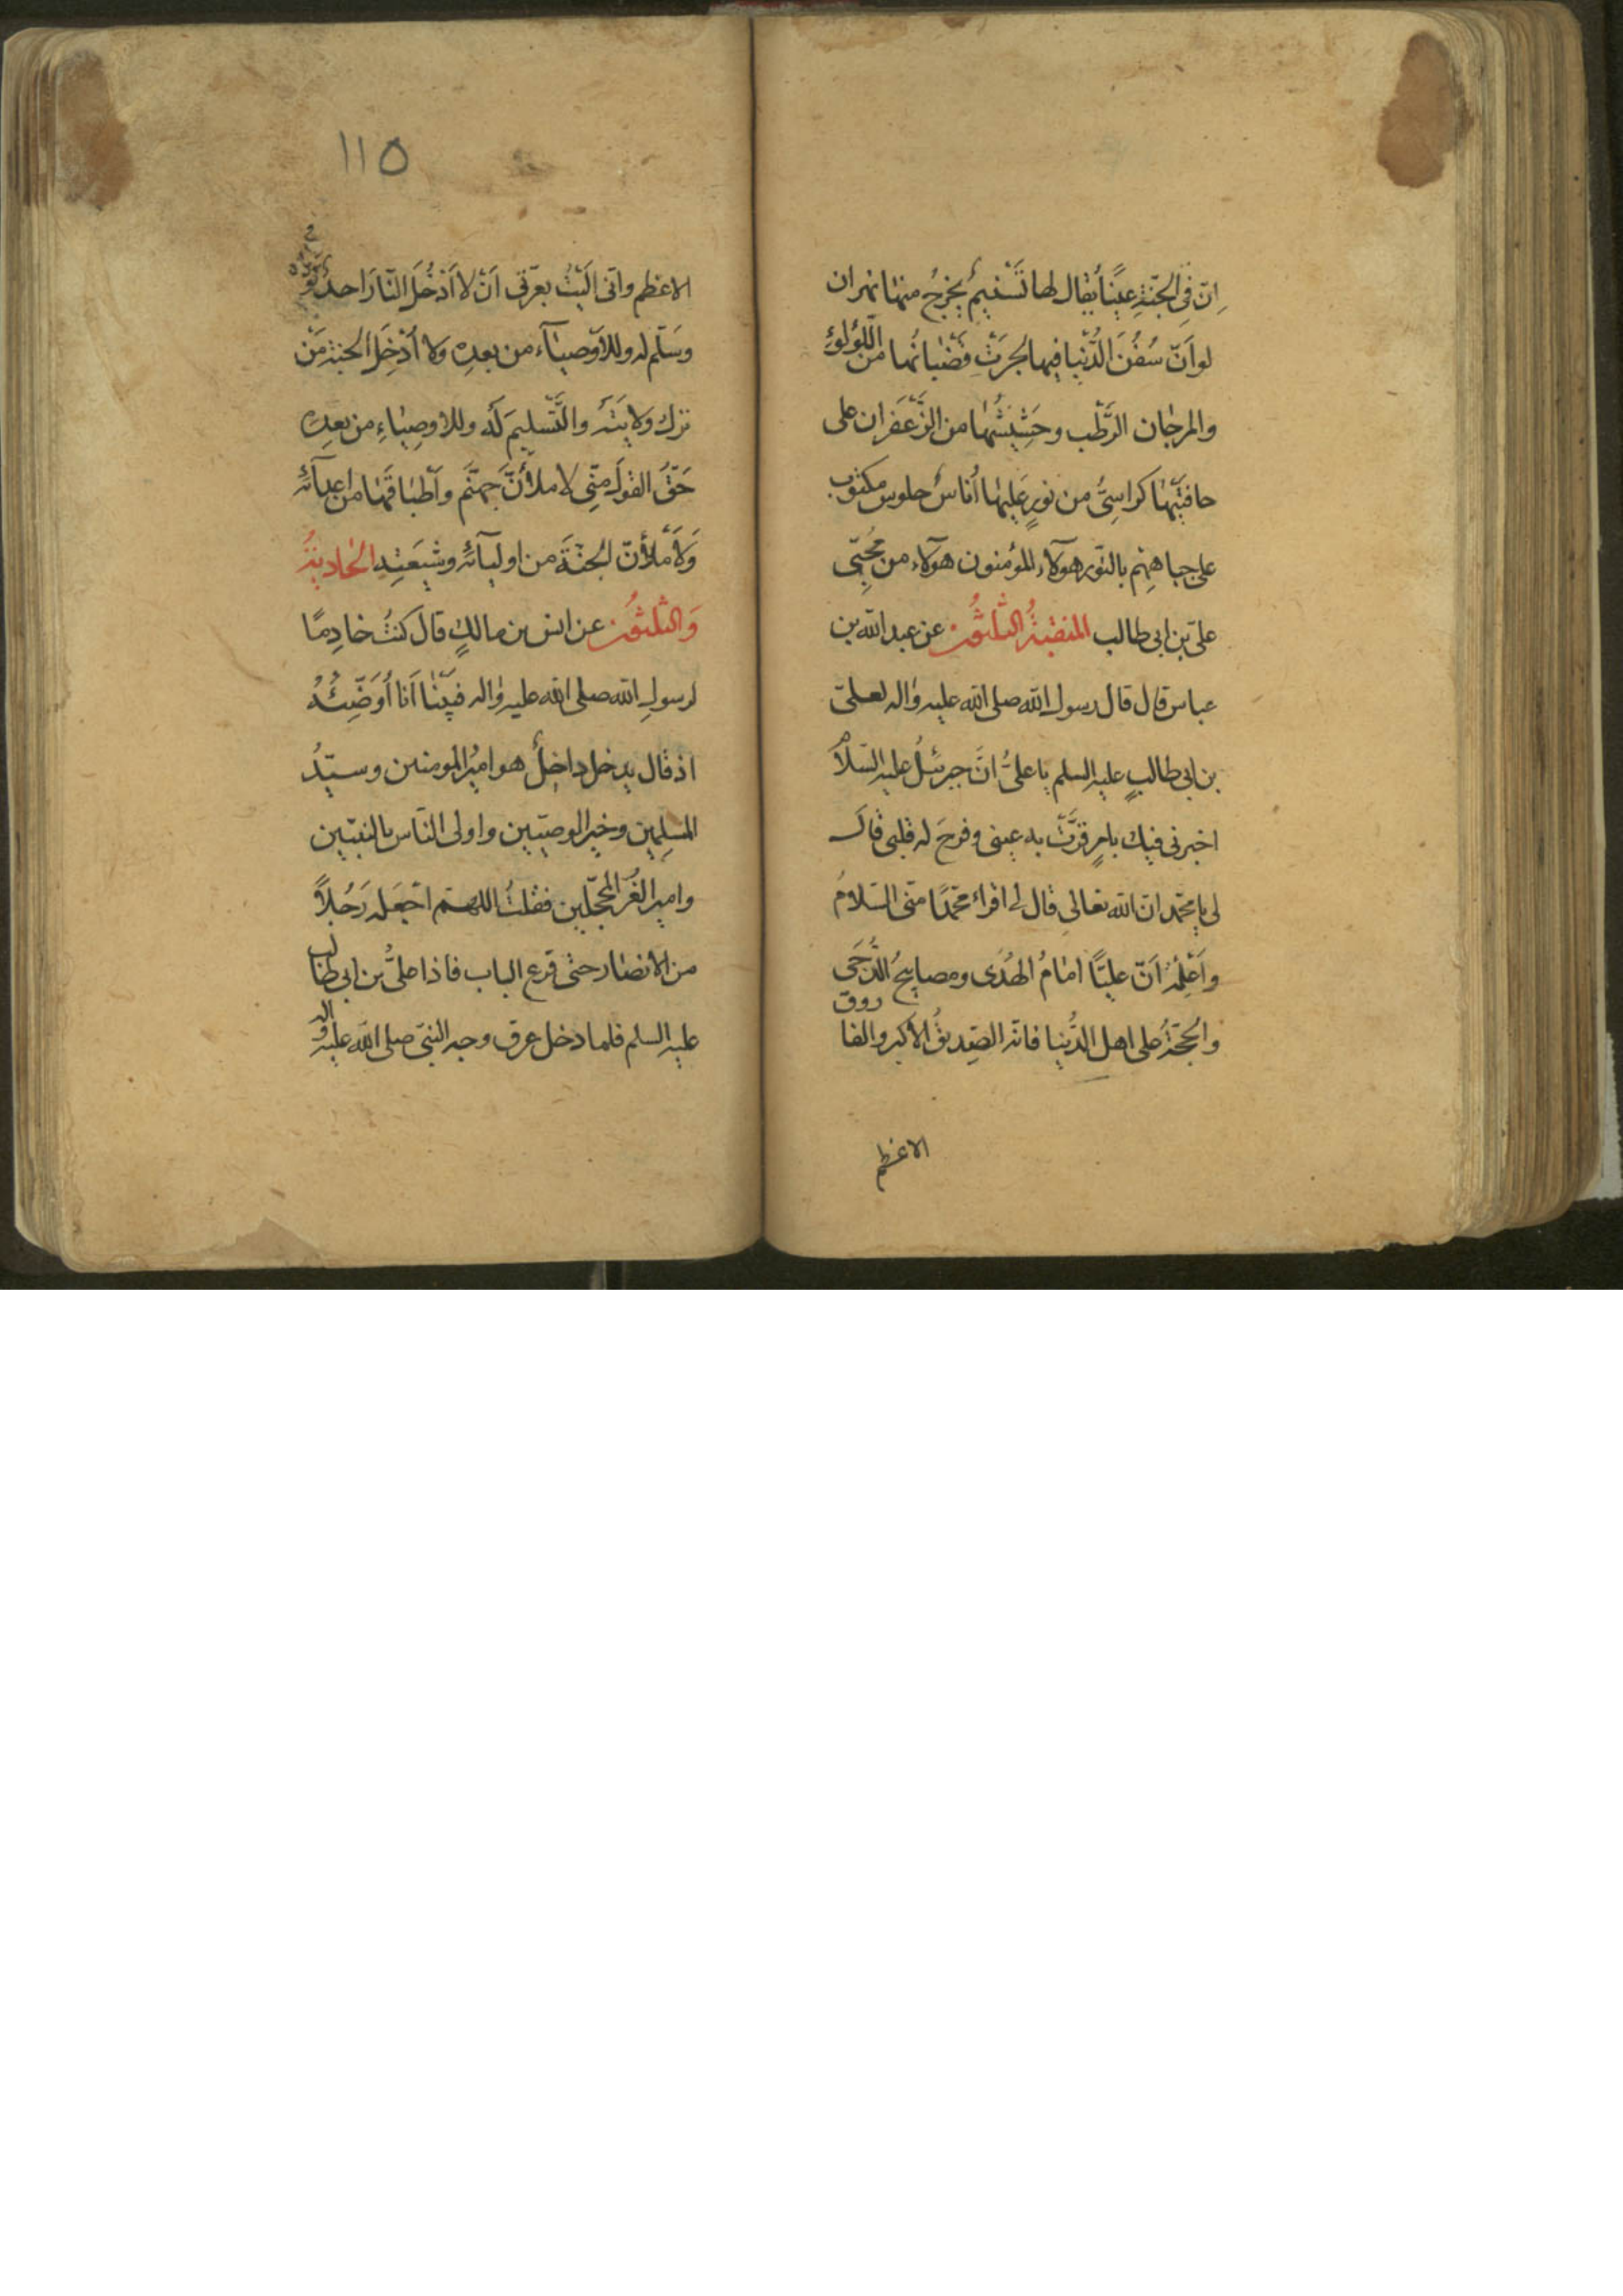 اِنّ فِى الجنّةِ عينًا يُقال لها تَسْنيمٌ يخرجُ منها نهران
لو اَنّ سُفُنَ الدُّنيا فيها لجرَتْ قضبانُها من اللّؤلؤِ
والمرجان الرّطْب وحَشيشُها من الزَّعْفَران على
حافتيْها كراسىُّ من نورٍ عليها اُناسٌ جلوس مكتوب
على جباههِمْ بالنّور هولاء المؤمنون هولاء من محُبّى
علىّ بن ابى طالب المنقبةُ الثلثون عن عبد الله بن
عباس قال قال رسول الله صلى الله عليه واله لعلىّ
بن ابى طالبٍ عليه السلم يا علىُّ انَّ جبرئيلُ عليه السّلامُ
اخبرنى فيك بامرٍ قرَّتْ به عينى وفرحَ له قلبى قال
لى يا محمّد انّ الله تعالى قال لى اقراء محمّدًا منّى السّلامُ
واَعْلِمْهُ اَنّ عليًّا امامُ الهُدى ومصابيحُ الدُّجَى
والحُجّةُ على اهل الدُّنيا فانّه الصّديقُ الاكبر والفاروق
الاعظم
١١٥
الاعظم وانّى آلَيْتُ بعزّتى اَنْ لا اَدْخُلَ النّارَ احدٌ تولّاه
وَسَلّم له وللاَوْصياء من بعده ولا اُدْخِلَ الجنةَ مَنْ
ترك ولايَتَهُ والتَّسليمَ لَه وللاوصياءِ من بعده
حَقّ القولُ مِنّى لاملأنّ جهنّم وأطباقَها من اعدآئه
وَلاَمْلأنّ الجنّةَ من اوليآئه وشيعَتِه الحادية
وَالثلثون عن انس بن مالكٍ قالَ كنتُ خادِمًا
لرسولِ الله صلى الله عليه واله فبَيْنا اَنا اُوَضِّئُهُ
اذ قال يدخل داخلٌ هو اميرُ المومنين وسيّدُ
المسلمين وخير الوصيّيين واولى الناس بالنبيّين
وامير الغُرِّ المحجّلين فقلتُ اللهم اجْعَله رَجُلاً
من الانصار حتى قرع الباب فاذا علىُّ بن ابى طالب
عليه السلم فلما دخل عرق وجه النبىّ صلى الله عليه واله